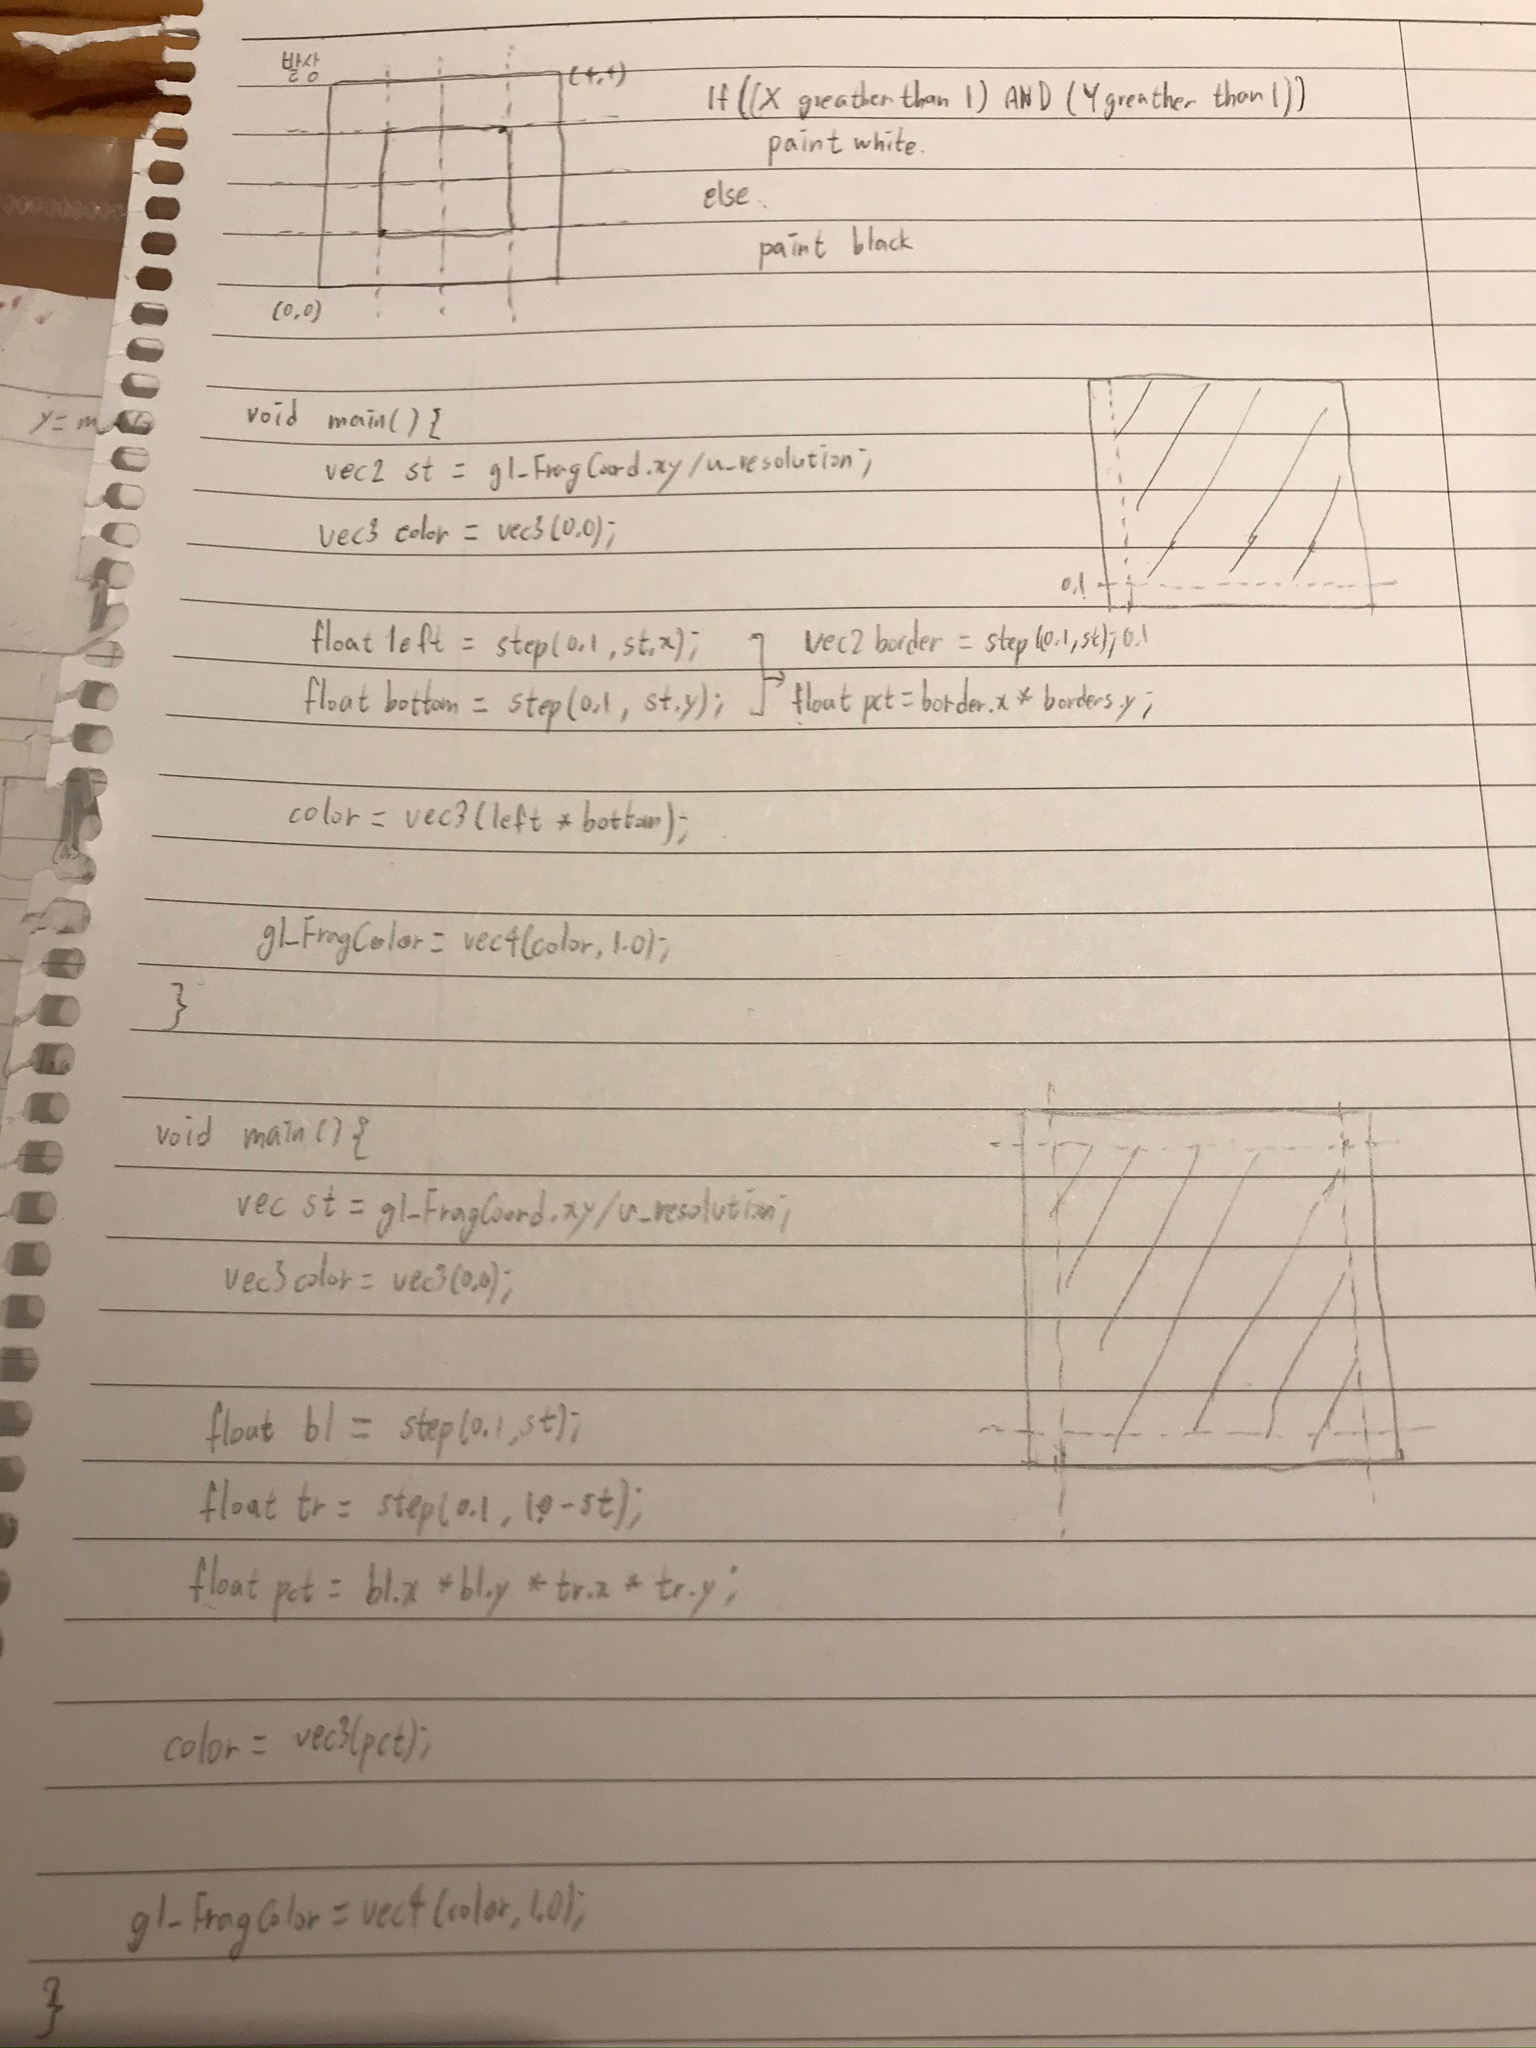 발상
(1,1)
If((X greather than 1) AND (Y greather than 1))
paint white.
else.
paint black
(0,0)
y=m
void main(){
vec2 st = gl_FragCoord.xy/u_resolution;
vec3 color = vec3(0.0);
0.1
float left = step(0.1, st.x);
vec2 border = step(0.1,st); 0.1
float bottom = step(0.1, st.y);
float pct=border.x * borders.y;
color = vec3(left * bottom);
gl_FragColor= vec4(color, 1.0);
}
void main(){
vec st = gl_FragCoord.xy/u_resolution;
vec3 color= vec3(0.0);
float bl = step(0.1,st);
float tr = step(0.1, 1.0-st);
float pct = bl.x *bl.y * tr.x * tr.y;
color = vec3(pct);
gl_FragColor=vec4(color, 1.0);
}